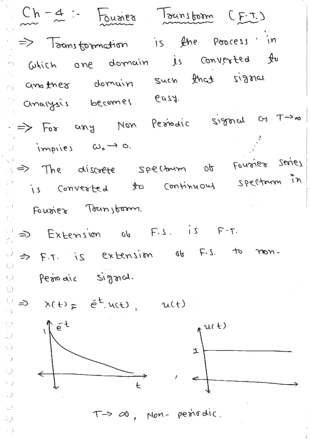 Ch-4 :- Fourier Transform (F.T.)
=> Transformation is the Process in
which one domain is converted to
another domain such that signal
analysis becomes easy.
=> For any Non Periodic signal as T→∞
implies ω₀→0.
=> The discrete spectrum of Fourier series
is converted to continuous spectrum in
Fourier Transform.
=> Extension of F.S. is F.T.
=> F.T. is extension of F.S. to non-
Periodic signal.
=> x(t) = e^-t.u(t), u(t)
1 e^-t t
u(t) 1
,
T→∞, Non-periodic.